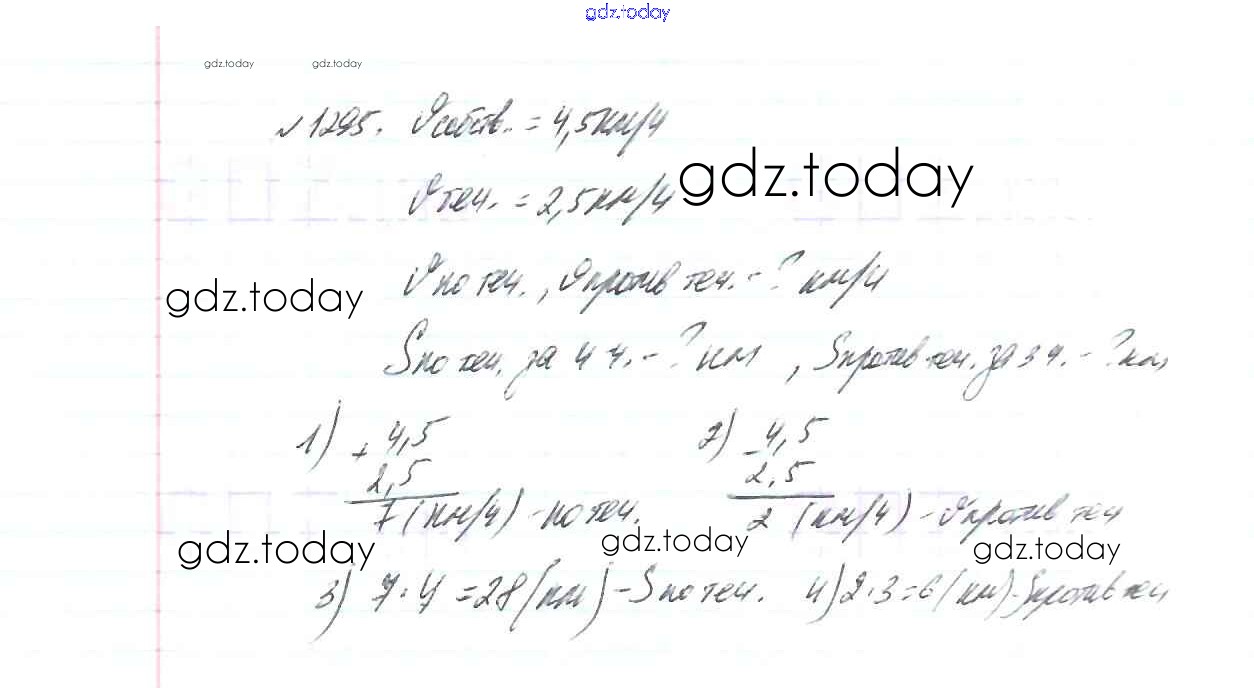 gdz.today
gdz.today gdz.today
№1295. Vсобств. = 4,5км/ч
Vтеч. = 2,5км/ч
gdz.today
Vпо теч., Vпротив теч. - ? км/ч
gdz.today
Sпо теч. за 4ч. - ? км, Sпротив теч. за 3ч. - ? км
1) + 4,5 2) - 4,5
2,5 2,5
7 (км/ч) - по теч. 2 (км/ч) - Vпротив теч
gdz.today gdz.today gdz.today
3) 7·4 = 28 (км) - Sпо теч. 4) 2·3 = 6 (км) - Sпротив теч